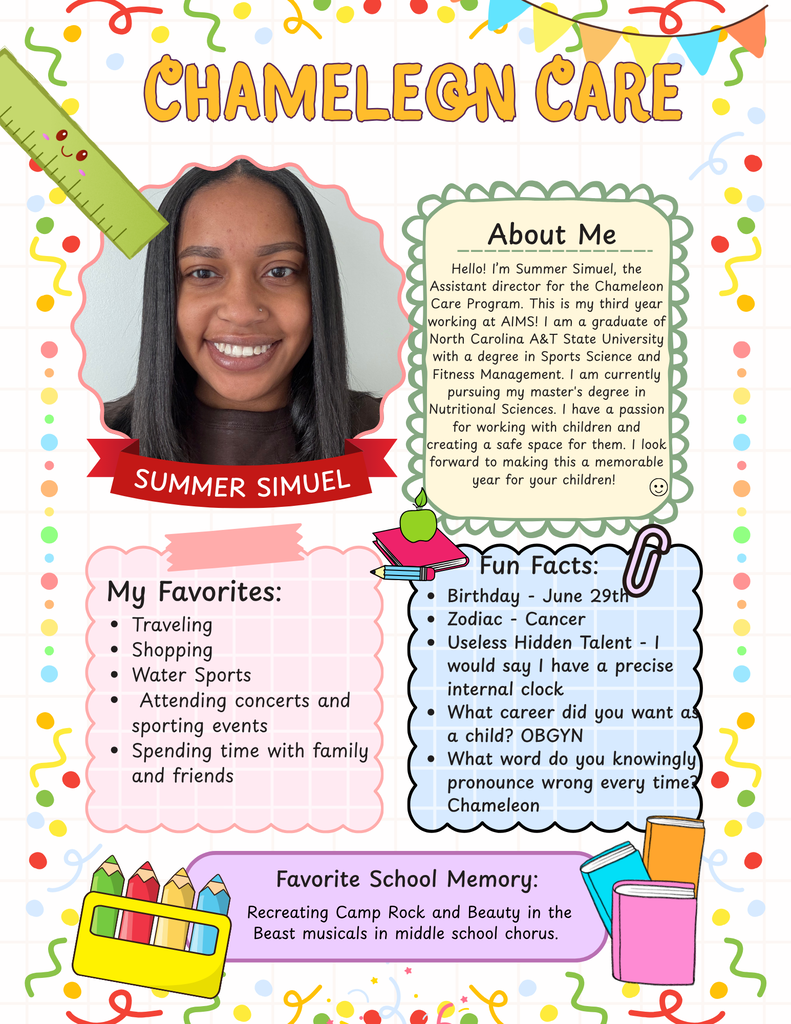 CHAMELEON CARE
SUMMER SIMUEL
About Me
Hello! I'm Summer Simuel, the
Assistant director for the Chameleon
Care Program. This is my third year
working at AIMS! I am a graduate of
North Carolina A&T State University
with a degree in Sports Science and
Fitness Management. I am currently
pursuing my master's degree in
Nutritional Sciences. I have a passion
for working with children and
creating a safe space for them. I look
forward to making this a memorable
year for your children!
My Favorites:
• Traveling
• Shopping
• Water Sports
• Attending concerts and
sporting events
• Spending time with family
and friends
Fun Facts:
• Birthday - June 29th
• Zodiac - Cancer
• Useless Hidden Talent - I
would say I have a precise
internal clock
• What career did you want as
a child? OBGYN
• What word do you knowingly
pronounce wrong every time?
Chameleon
Favorite School Memory:
Recreating Camp Rock and Beauty in the
Beast musicals in middle school chorus.